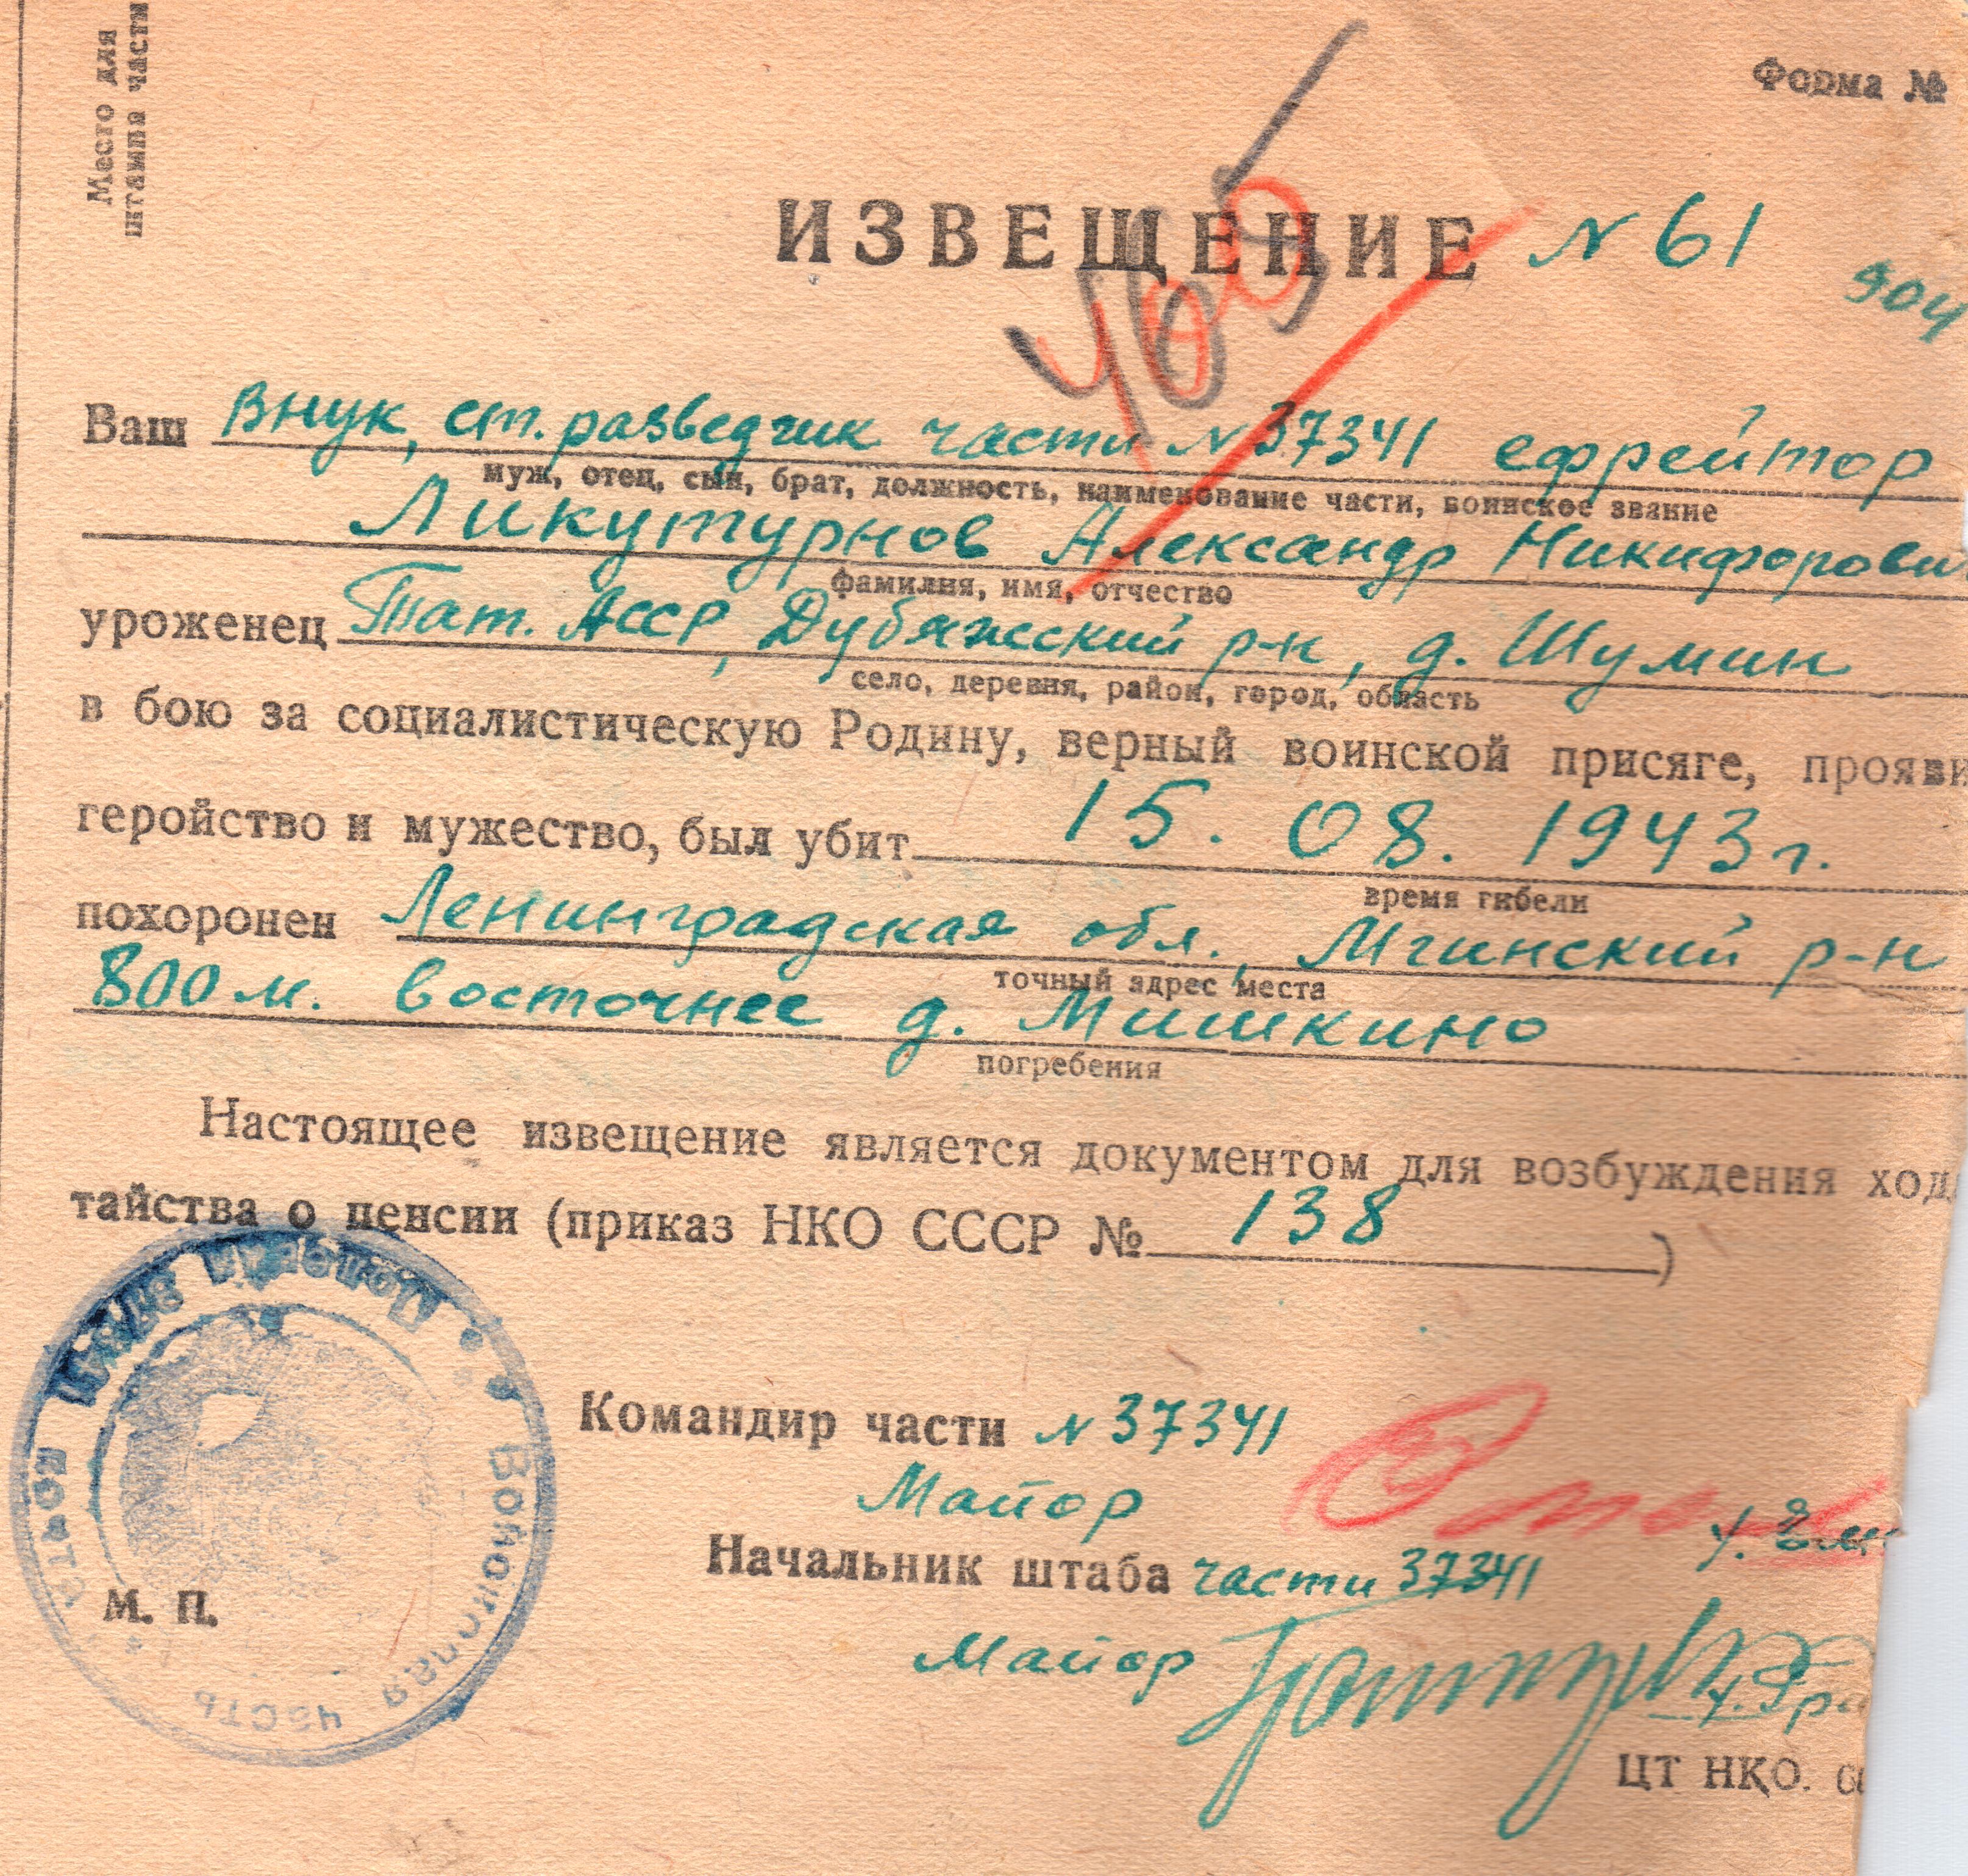 Место для
штампа части
Форма №
ИЗВЕЩЕНИЕ N 61
904
Ваш внук, ст. разведчик части N 37341 ефрейтор
муж, отец, сын, брат, должность, наименование части, воинское звание
Ликутурнов Александр Никифорови
фамилия, имя, отчество
уроженец Тат. АССР, Дубяжский р-н, д. Шумин
село, деревня, район, город, область
в бою за социалистическую Родину, верный воинской присяге, прояви
геройство и мужество, был убит 15. 08. 1943 г.
время гибели
похоронен Ленинградская обл., Мгинский р-н
точный адрес места
800 м. восточнее д. Мишкино
погребения
Настоящее извещение является документом для возбуждения ход
тайства о пенсии (приказ НКО СССР № 138 )
Полевая почта
Войсковая часть
Командир части N 37341
Майор
Начальник штаба части 37341
М. П.
Майор
ЦТ НКО.